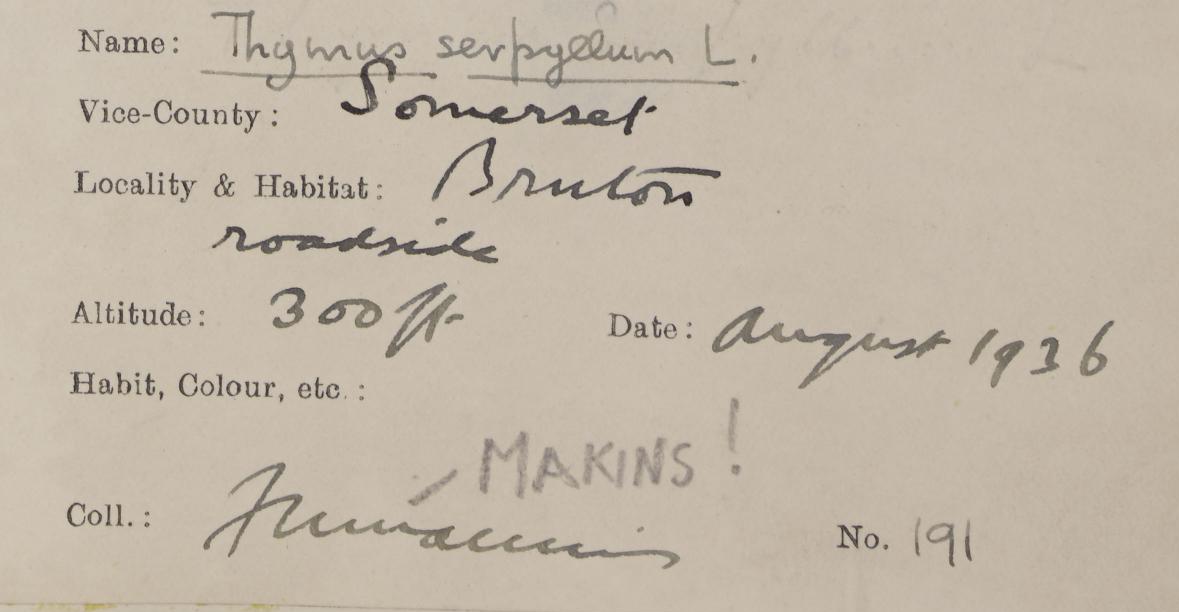 Name: Thymus serpyllum L.
Vice-County: Somerset
Locality & Habitat: Bruton
roadside
Altitude: 300 ft. Date: August 1936
Habit, Colour, etc.:
MAKINS!
Coll.: No. 191